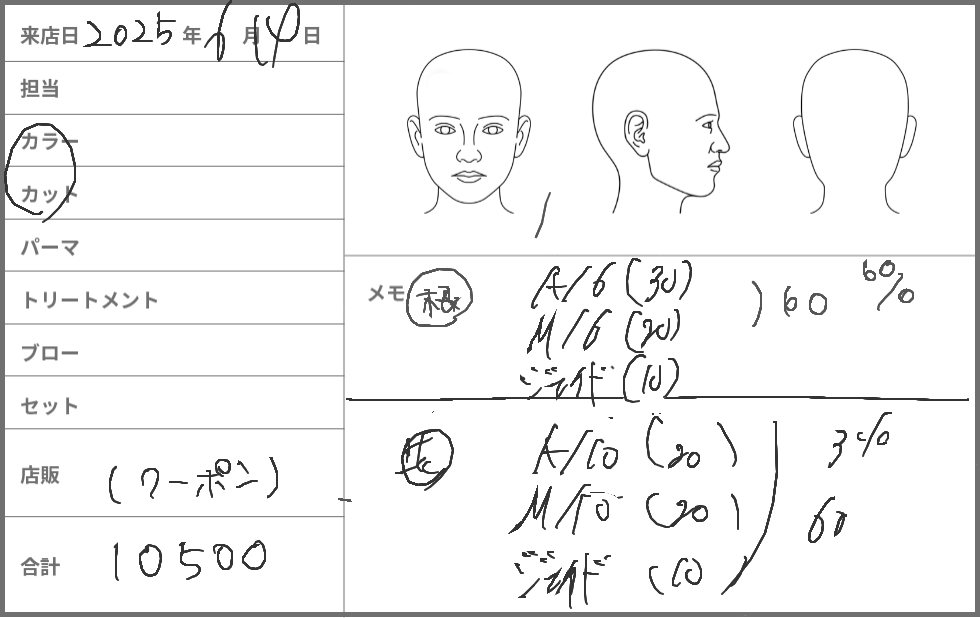 来店日 2025年6月14日
担当
カラー
カット
パーマ
トリートメント
ブロー
セット
店販 (クーポン)
合計 10500
メモ
根 A/6 (30)
M/6 (20)
ジェイド (10)
) 60 6%
A/10 (20)
M/10 (20)
ジェイド (10)
3%
60